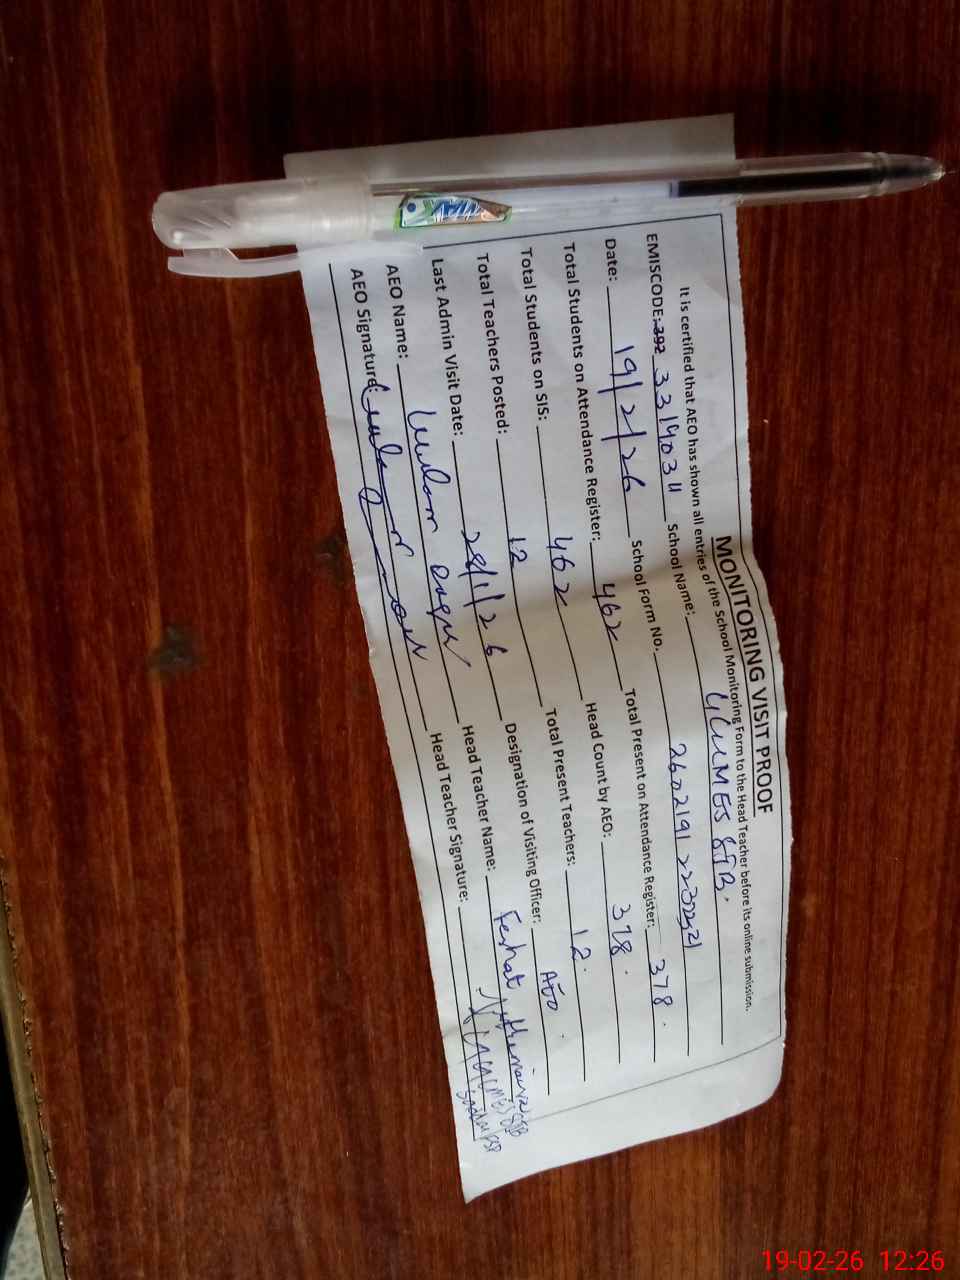 MONITORING VISIT PROOF
It is certified that AEO has shown all entries of the School Monitoring Form to the Head Teacher before its online submission.
EMISCODE: 392 3314034 School Name:
Date: 19/2/26 School Form No.
Total Students on Attendance Register: 462 Total Present on Attendance Register: 378.
Total Students on SIS: 462 Head Count by AEO: 378.
Total Teachers Posted: 12 Total Present Teachers: 12.
Last Admin Visit Date: 28/1/26 Designation of Visiting Officer: AEO.
AEO Name: Head Teacher Name:
AEO Signature: Head Teacher Signature:
19-02-26 12:26